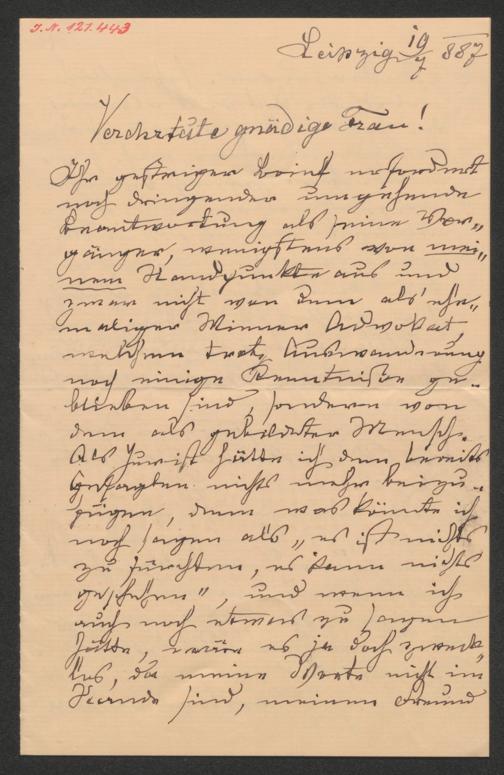 I.N. 121.443
Leipzig 19/7 887
Verehrteste gnädige Frau!
Ihr gestriger Brief erfordert
noch dringender umgehende
Beantwortung als seine Vor„
gänger, wenigstens von mei„
nem Standpunkte aus und
zwar nicht von dem als ehe„
maliger Wiener Advokat,
welchem trotz Auswanderung
noch einige Kenntnisse ge„
blieben sind, sondern von
dem als gebildeter Mensch.
Als Jurist hätte ich dem bereits
Gesagten nichts mehr beizu„
fügen, denn was könnte ich
noch sagen als „es ist nichts
zu fürchten, es kann nichts
geschehen", und wenn ich
auch noch etwas zu sagen
hätte, wäre es ja doch zweck„
los, da meine Worte nicht im
Stande sind, meinem Freund